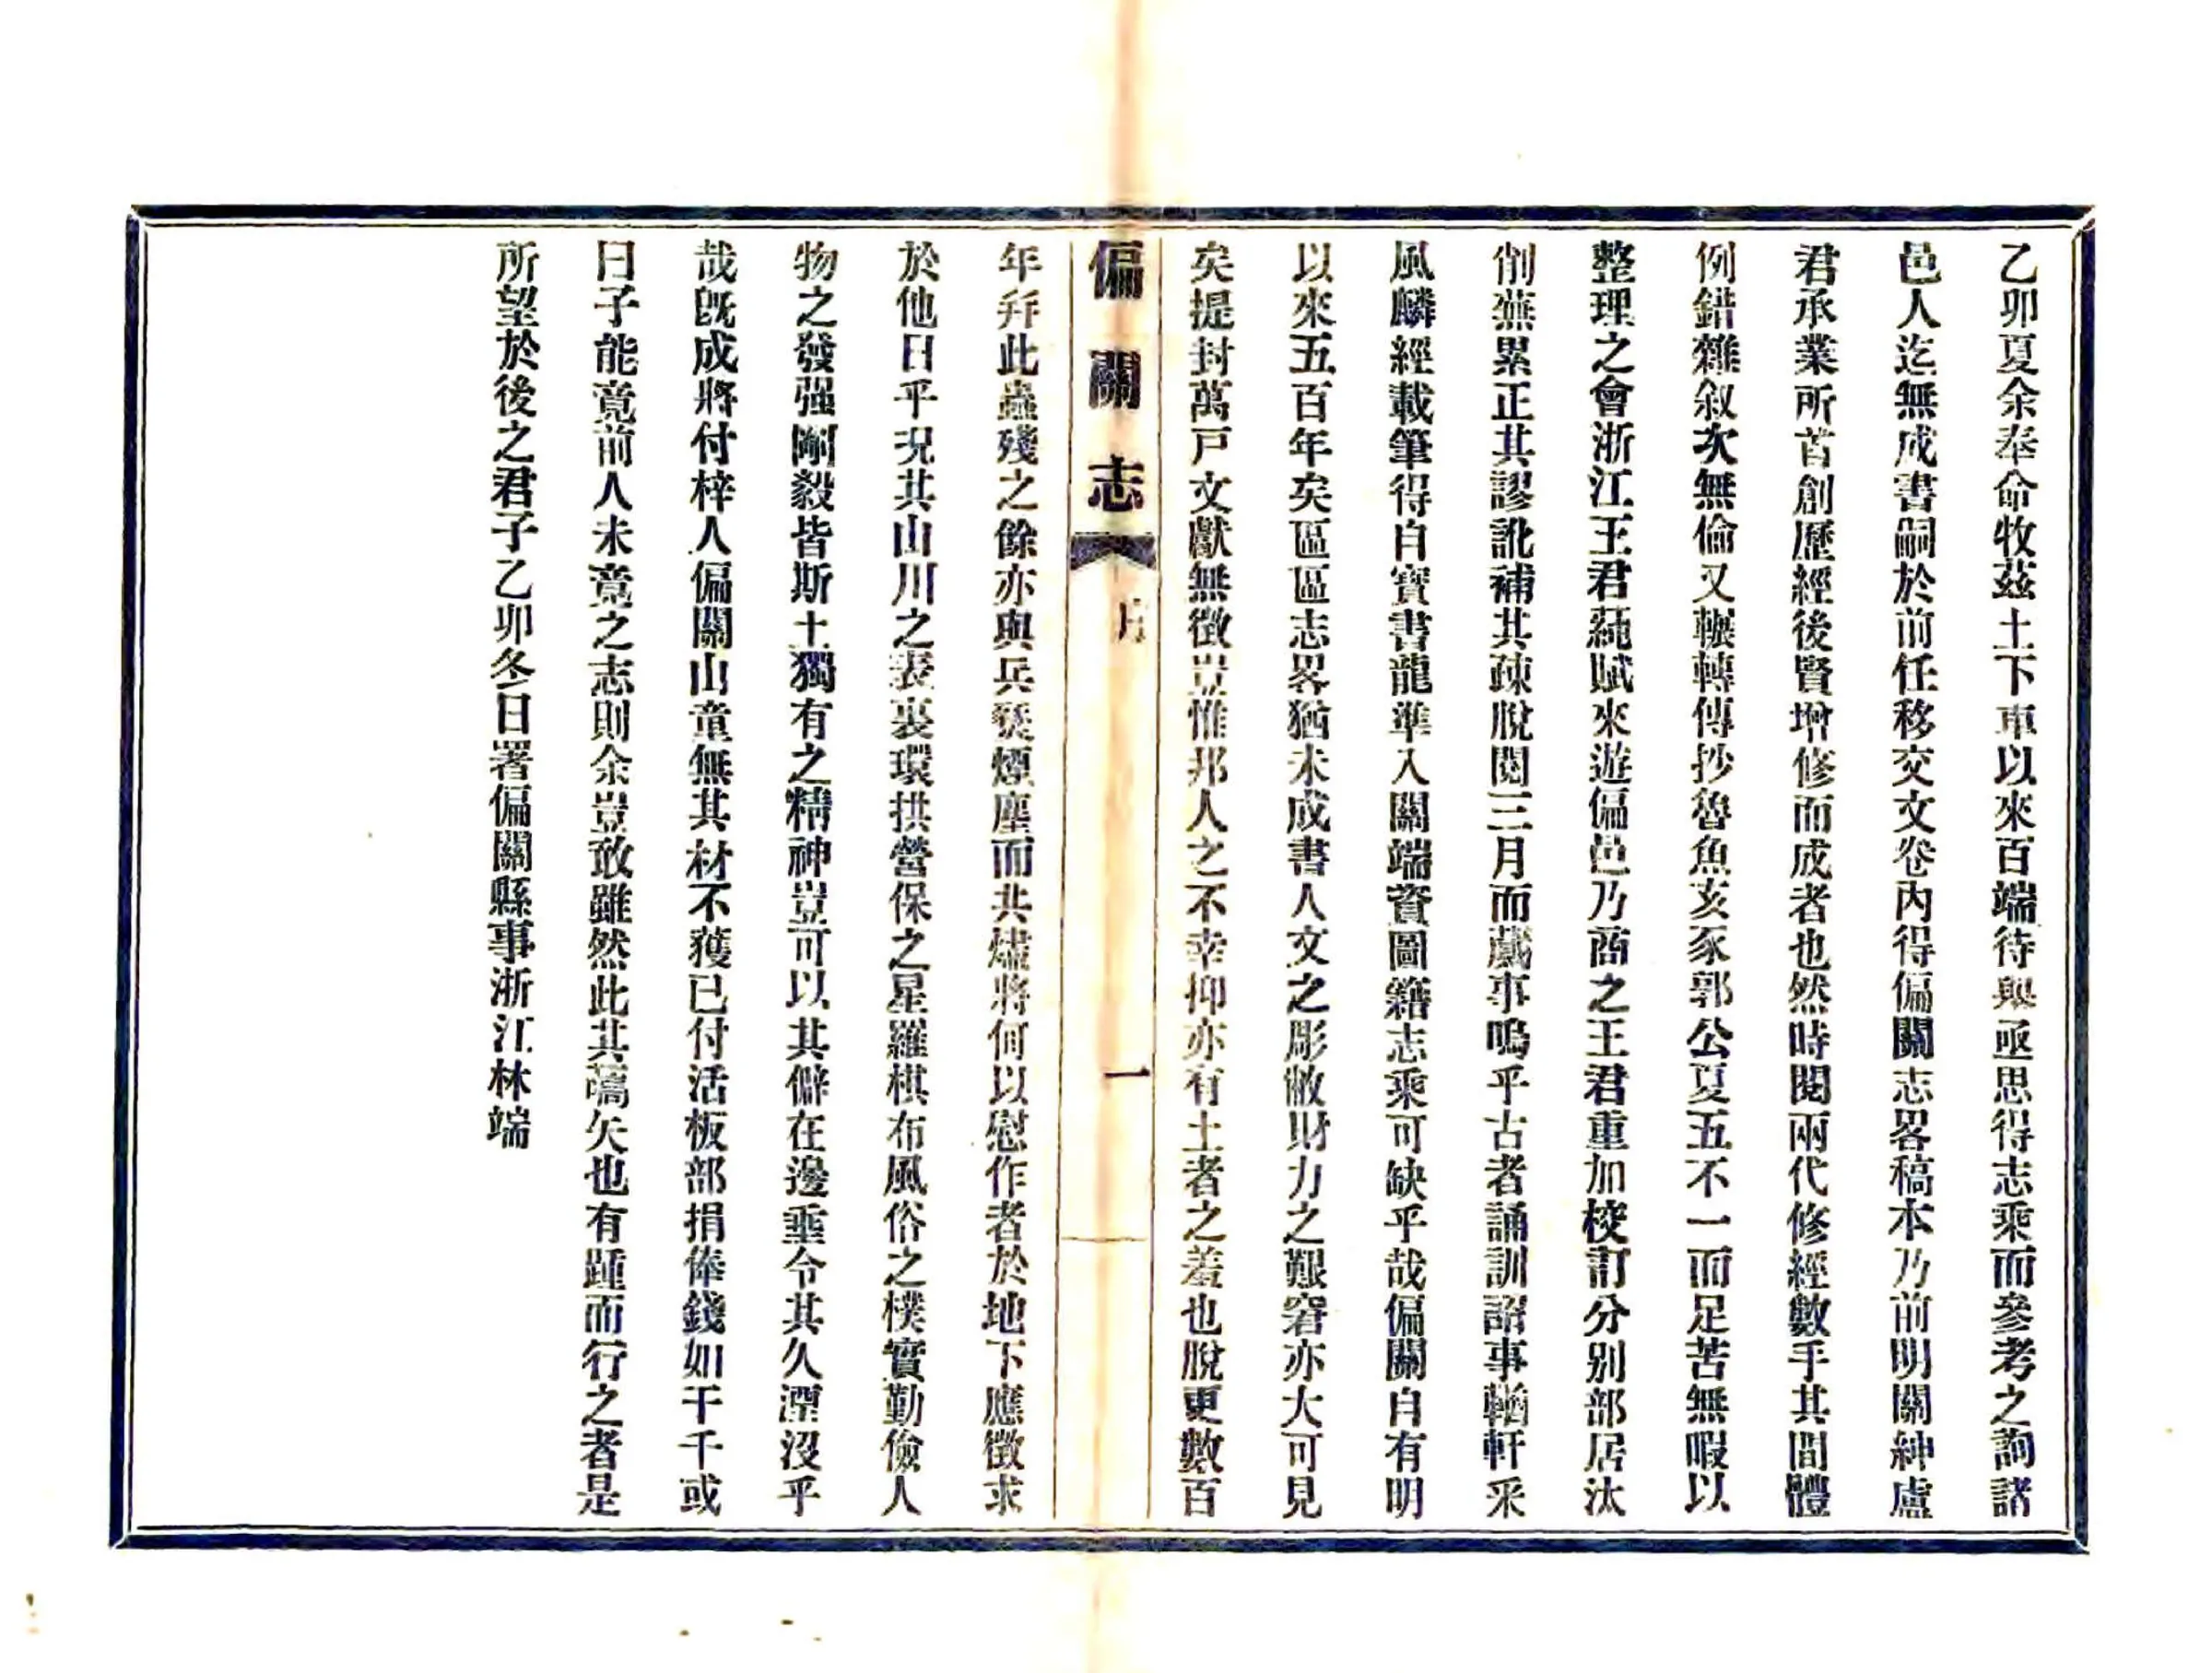 乙卯夏余奉命牧茲土下車以來百端待興亟思得志乘而參考之詢諸
邑人迄無成書嗣於前任移交文卷內得偏關志畧稿本乃前明關紳盧
君承業所首創歷經後賢增修而成者也然時閱兩代修經數手其間體
例錯雜敘次無倫又輾轉傳抄魯魚亥豕郭公夏五不一而足苦無暇以
整理之會浙江王君蒓賦來遊偏邑乃商之王君重加校訂分別部居汰
削蕪累正其謬訛補其疎脫閱三月而蕆事嗚乎古者誦訓詔事輶軒采
風麟經載筆得自寶書龍準入關端資圖籍志乘可缺乎哉偏關自有明
以來五百年矣區區志畧猶未成書人文之彫敝財力之艱窘亦大可見
矣提封萬戶文獻無徵豈惟邦人之不幸抑亦有土者之羞也脫更數百
偏關志
序
一
年幷此蟲殘之餘亦與兵燹煙塵而共燼將何以慰作者於地下應徵求
於他日乎況其山川之表裏環拱營保之星羅棋布風俗之樸實勤儉人
物之發强剛毅皆斯土獨有之精神豈可以其僻在邊埀令其久湮沒乎
哉旣成將付梓人偏關山童無其材不獲已付活板部捐俸錢如干千或
曰子能竟前人未竟之志則余豈敢雖然此其蒿矢也有踵而行之者是
所望於後之君子乙卯冬日署偏關縣事浙江林端